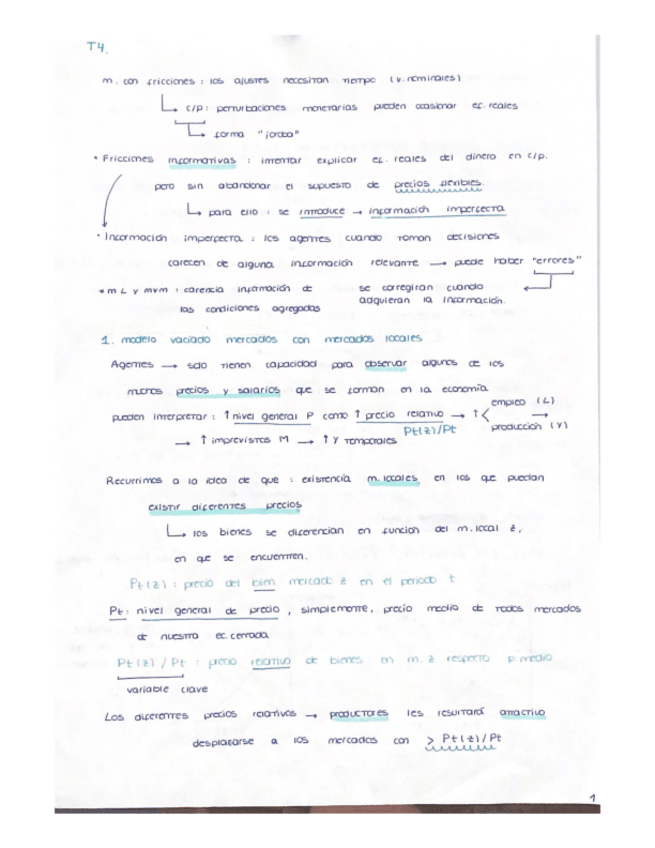 T4.
m. con fricciones : los ajustes necesitan tiempo (v. nominales)
↳ c/p : perturbaciones monetarias pueden ocasionar ef. reales
↳ forma "joroba"
• Fricciones informativas : intentar explicar ef. reales del dinero en c/p.
pero sin abandonar el supuesto de precios flexibles.
↳ para ello : se introduce → información imperfecta
• Información imperfecta : los agentes cuando toman decisiones
carecen de alguna información relevante → puede haber "errores"
* m L y mvm : carencia información de
las condiciones agregadas
se corregiran cuando
adquieran la información.
1. modelo vaciado mercados con mercados locales
Agentes → solo tienen capacidad para observar algunos de los
muchos precios y salarios que se forman en la economía
pueden interpretar : ↑ nivel general P como ↑ precio relativo → ↑ < empleo (L)
Pt(z)/Pt → producción (Y)
→ ↑ imprevistos M → ↑ Y temporales
Recurrimos a la idea de que : existencia m. locales en los que puedan
existir diferentes precios
↳ los bienes se diferencian en función del m. local z,
en que se encuentren.
Pt(z) : precio del bien mercado z en el periodo t
Pt : nivel general de precio, simplemente, precio medio de todos mercados
de nuestra ec. cerrada
Pt(z) / Pt : precio relativo de bienes en m. z respecto p. medio
variable clave
Los diferentes precios relativos → productores les resultará atractivo
desplazarse a los mercados con > Pt(z)/Pt
1